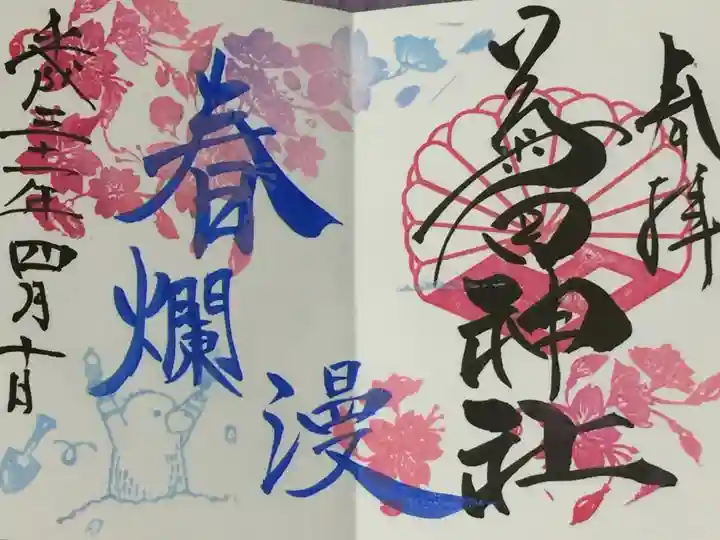 奉拝
菊田神社
春爛漫
平成三十一年四月十日